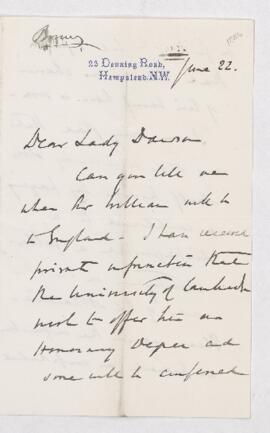 1886
23 Denning Road,
Hampstead. N.W.
June 22.
Dear Lady Dawson
Can you tell me
when Sir William will be
to England - I have received
private information that
the University of
wish to offer him an
Honorary Degree and
some will be